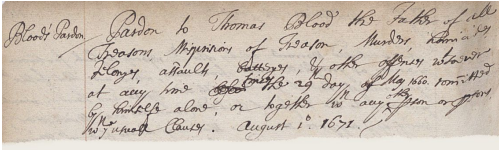 Bloods Pardon
Pardon to Thomas Blood the Father of all
Treasons Misprisions of Treason, Murders, homicides
felonyes, assaults, batteryes, & other offenses whatsoever
at any time since the 29 day of May 1660. comitted
by himselfe alone, or together wth any other pson or psons
wth ye usuall Clauses. August 1o. 1671.